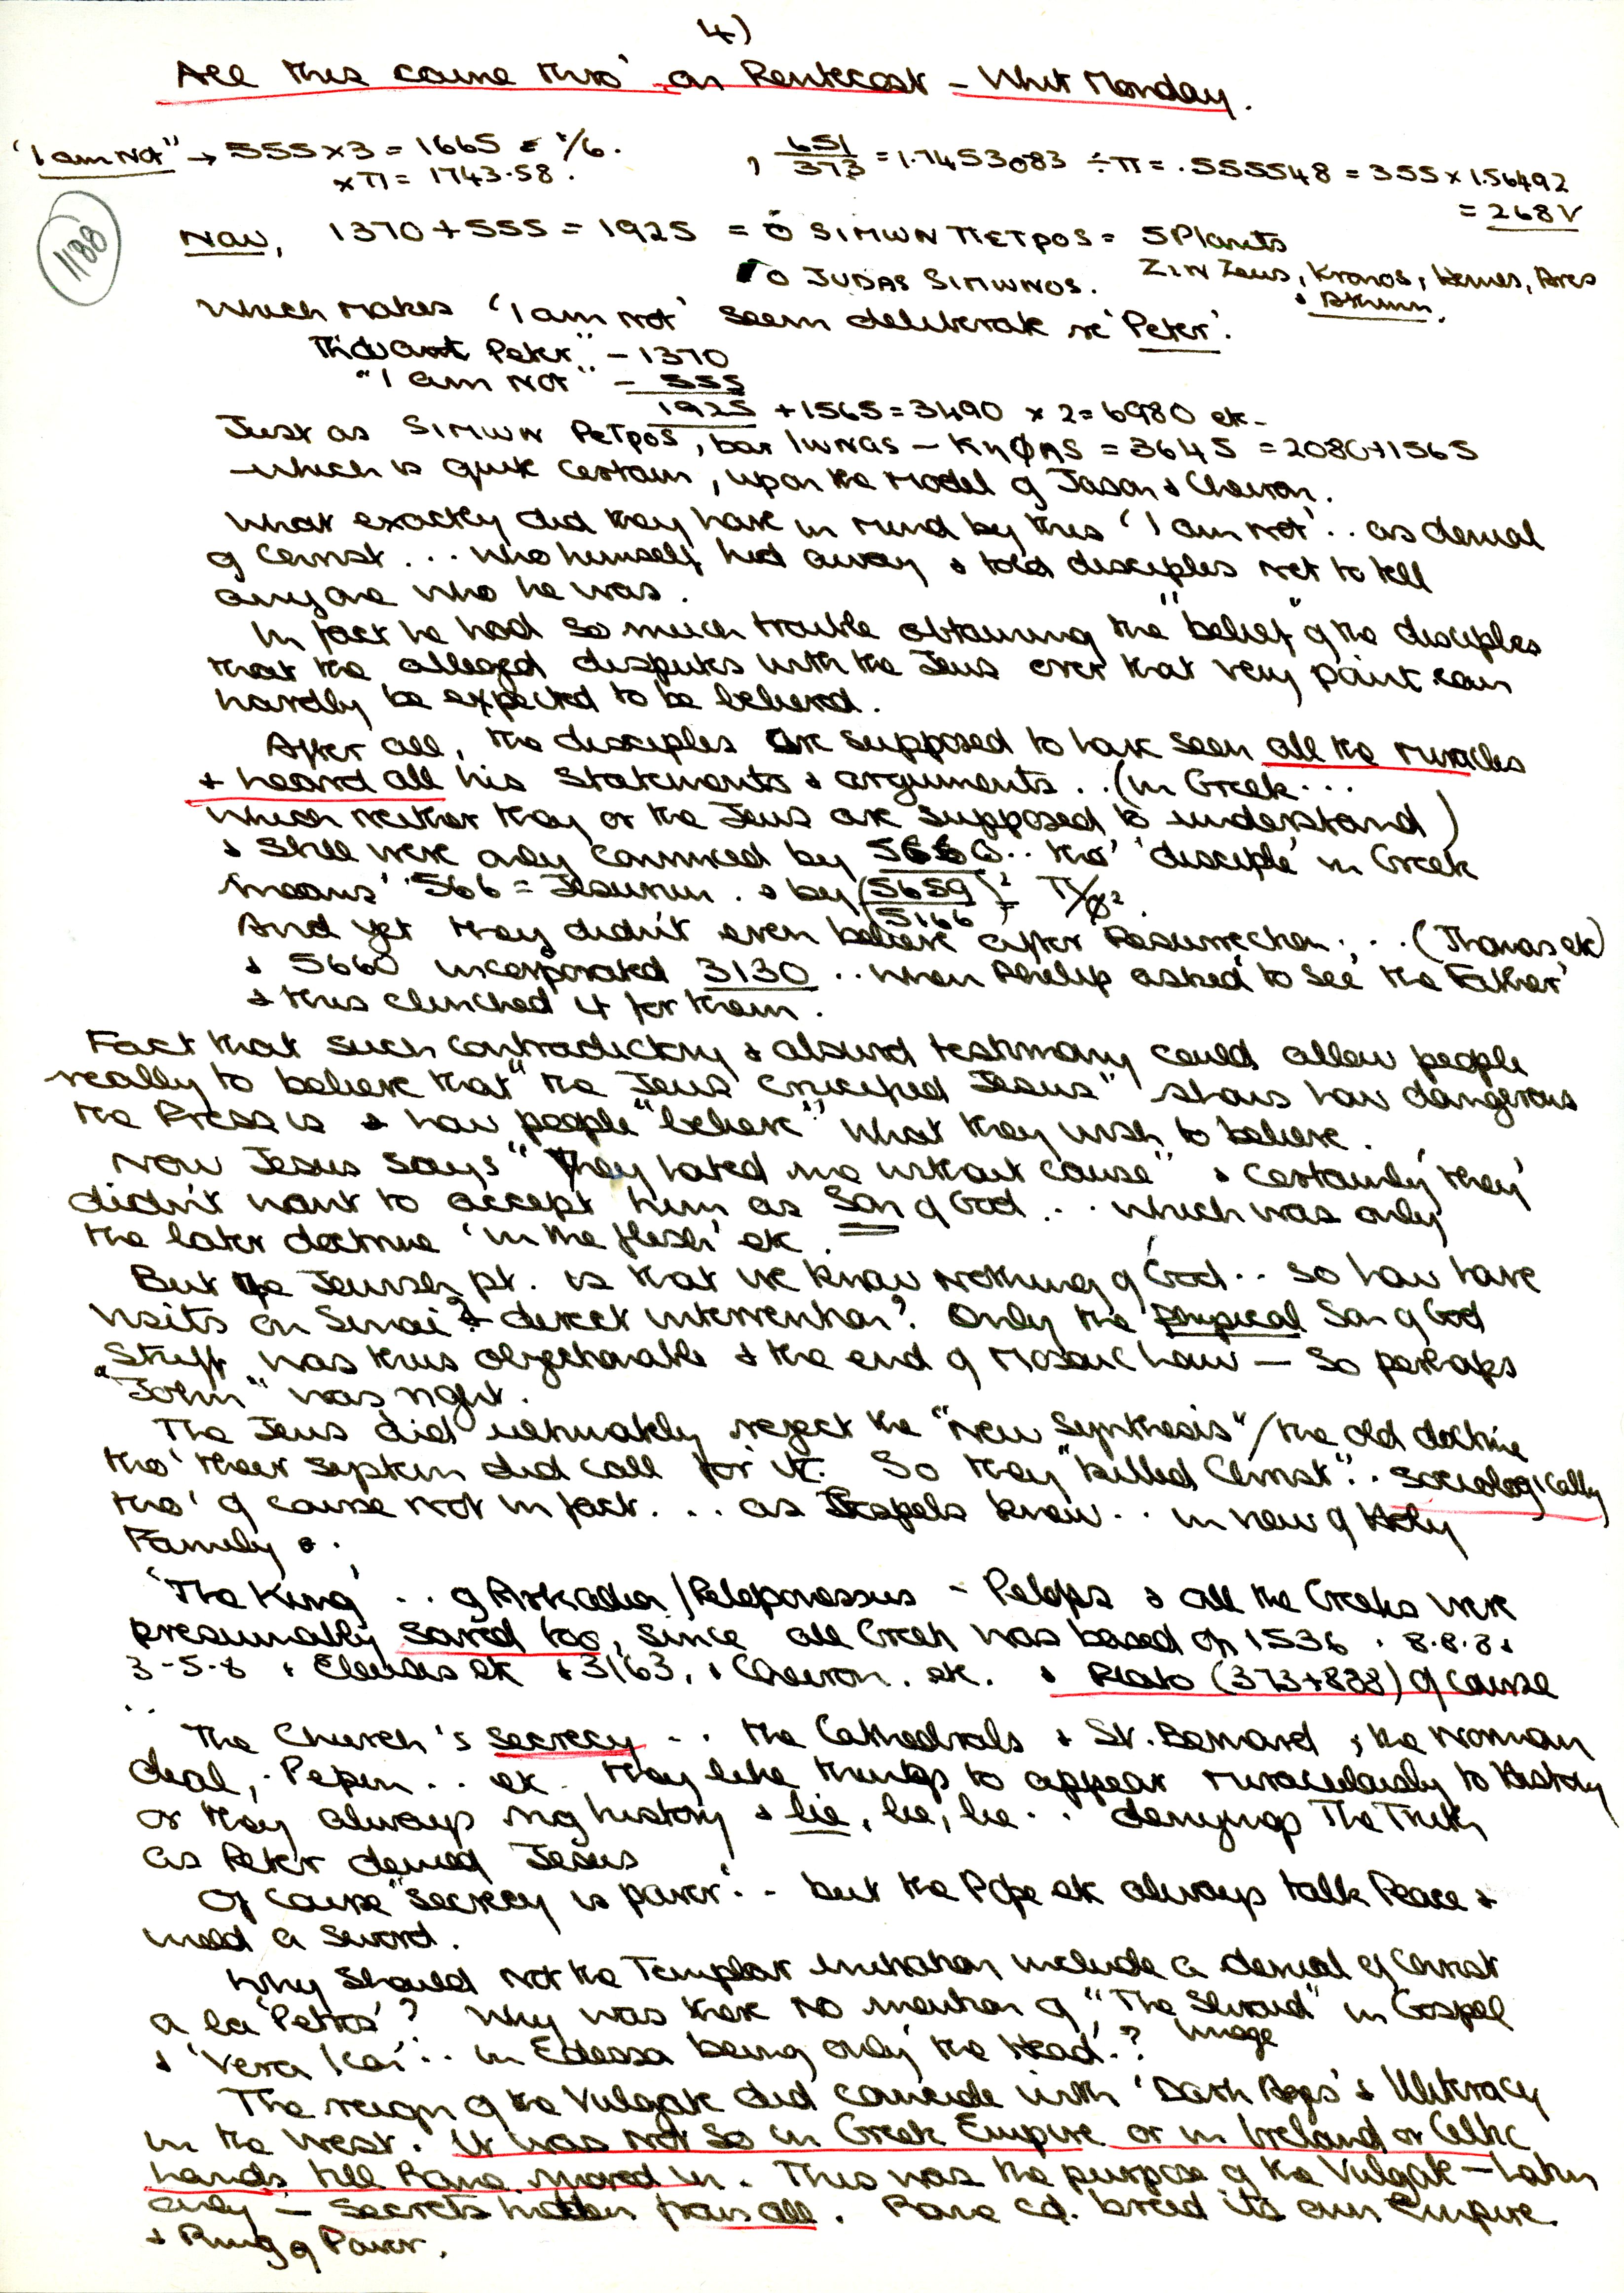 4)
All this came thro' on Pentecost - Whit Monday.
'I am Not" → 555 x 3 = 1665 = 1/6.
x π = 1743.58.
, 651/373 = 1.7453083 ÷ π = .555548 = 355 x 1.56492
= 268 V
1188
Now, 1370 + 555 = 1925 = Ó SIMWN ΠETPOS = 5 Planets
O JUDAS SIMWNOS. ZIN Zeus, Kronos, Hermes, Ares
Which makes 'I am not' seem deliberate re 'Peter'.
Thou art Peter" - 1370
"I am Not" - 555
1925 + 1565 = 3490 x 2 = 6980 etc -
Just as SIMWN PETPOS, bar IWNAS - KHΦAS = 3645 = 2080+1565
- which is quite certain, upon the model of Jason & Cheiron.
What exactly did they have in mind by this 'I am not'.. as denial
of Christ ... who himself hid away & told disciples not to tell
anyone who he was.
In fact he had so much trouble obtaining the "belief" of the disciples
that the alleged disputes with the Jews over that very point can
hardly be expected to be believed.
After all, the disciples are supposed to have seen all the miracles
& heard all his statements & arguments .. (in Greek ...
which neither they or the Jews are supposed to understand)
& still were only convinced by 5660.. tho' 'disciple' in Greek
means' '566 = Jesurun. & by (5659/5166)² = π/φ².
And yet they didn't even believe after Resurrection ... (Thomas etc)
& 5660 incorporated 3130 .. when Philip asked 'to see the Father'
& this clinched it for them.
Fact that such contradictory & absurd testimony could allow people
really to believe that "the Jews crucified Jesus" shows how dangerous
the Press is & how people "believe" what they wish to believe.
Now Jesus says "They hated me without cause" & certainly 'they'
didn't want to accept him as Son of God ... which was only
the later doctrine 'in the flesh' etc.
But the Jewish pt. is that we know nothing of God .. so how have
visits on Sinai & direct intervention? Only the physical Son of God
stuff was thus objectionable & the end of Mosaic Law — So perhaps
"John" was right.
The Jews did ultimately reject the "New Synthesis" / the old doctrine
tho' their system did call for it. So they "killed Christ".. sociologically
tho' of course not in fact ... as Gospels knew .. in view of Holy
Family ..
'The King' .. of Arkadia / Peloponessus - Pelops & all the Greeks were
presumably saved too, since all Greek was based on 1536 . 8.8.8 &
3-5-8 & Eleusis etc & 3163, & Cheiron. etc. & Plato (373+888) of course
..
The Church's secrecy .. the Cathedrals & St. Bernard, the Norman
deal, Pepin .. etc. They like things to appear miraculously to History
or they always rig history & lie, lie, lie .. denying The Truth
as Peter denied Jesus
Of course "secrecy is power".. but the Pope etc always talk Peace &
wield a Sword.
Why should not the Templar initiation include a denial of Christ
a la 'Petros'? Why was there no mention of "The Shroud" in Gospel
& 'Vera Icai'.. in Edessa being only 'the Head'.? Image
The reign of the Vulgate did coincide with 'Dark Ages' & Illiteracy
in the West. It was not so in Greek Empire or in Ireland or Celtic
hands till Rome moved in. This was the purpose of the Vulgate — Latin
only — Secrets hidden from all. Rome cd. breed its own Empire.
& Ring of Power.